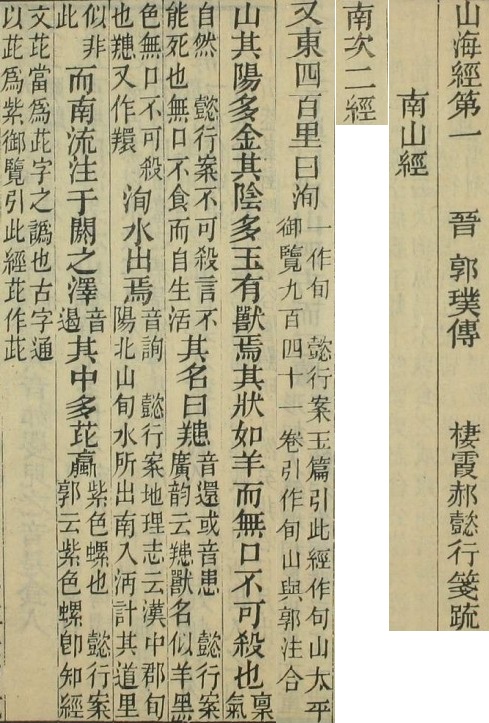 山海經第一 晉 郭璞傳 棲霞郝懿行箋疏
南山經
南次二經
又東四百里曰洵 一作旬 懿行案玉篇引此經作句山太平
御覽九百四十一卷引作旬山與郭注合
山其陽多金其陰多玉有獸焉其狀如羊而無口不可殺也 稟
氣
自然 懿行案不可殺言不
能死也無口不食而自生活
其名曰䍺 音還或音患 懿行案
廣韵云䍺獸名似羊黑
色無口不可殺
也䍺又作羦
洵水出焉 音詢 懿行案地理志云漢中郡旬
陽北山旬水所出南入沔計其道里
似非
此
而南流注于閼之澤 音
遏
其中多茈蠃 紫色螺也 懿行案
郭云紫色螺卽知經
文茈當爲茈字之譌也古字通
以茈爲紫御覽引此經茈作茈